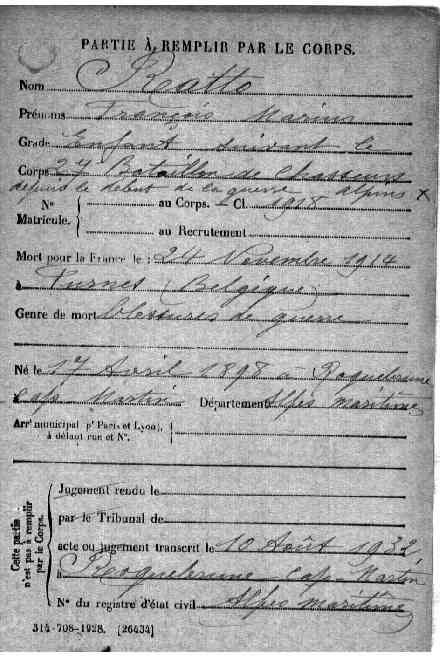 PARTIE À REMPLIR PAR LE CORPS.
Nom Ratto
Prénoms François Marius
Grade Enfant suivant le
Corps 24 Bataillon de Chasseurs
depuis le début de la guerre alpins x
N° Matricule. { au Corps. – Cl. 1918
au Recrutement
Mort pour la France le : 24 Novembre 1914
à Furnes (Belgique)
Genre de mort blessures de guerre
Né le 17 Avril 1898 à Roquebrune
Cap Martin Département Alpes maritimes
Arrt municipal (pr Paris et Lyon),
à défaut rue et N°.
Cette partie n'est pas à remplir par le Corps.
Jugement rendu le
par le Tribunal de
acte ou jugement transcrit le 10 Août 1932
à Roquebrune Cap-Martin
N° du registre d'état civil Alpes maritimes
314-708-1928. [26434]